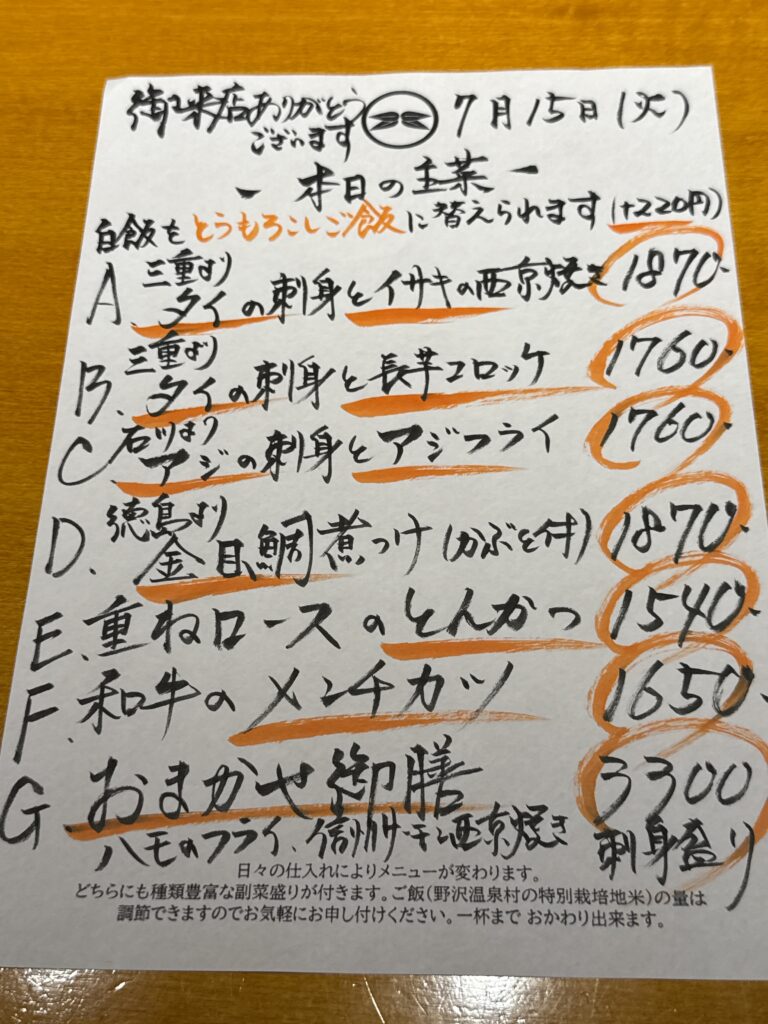 御来店ありがとう
ございます
7月15日(火)
- 本日の主菜 -
白飯をとうもろこしご飯に替えられます(+220円)
三重より
A、タイの刺身とイサキの西京焼き 1870-
三重より
B、タイの刺身と長芋コロッケ 1760-
石川より
C、アジの刺身とアジフライ 1760-
徳島より
D、金目鯛煮つけ(かぶと付) 1870-
E、重ねロースのとんかつ 1540-
F、和牛のメンチカツ 1650-
G、おまかせ御膳 3300
ハモのフライ、信州サーモン西京焼き 刺身盛り
日々の仕入れによりメニューが変わります。
どちらにも種類豊富な副菜盛りが付きます。ご飯(野沢温泉村の特別栽培地米)の量は
調節できますのでお気軽にお申し付けください。一杯まで おかわり出来ます。